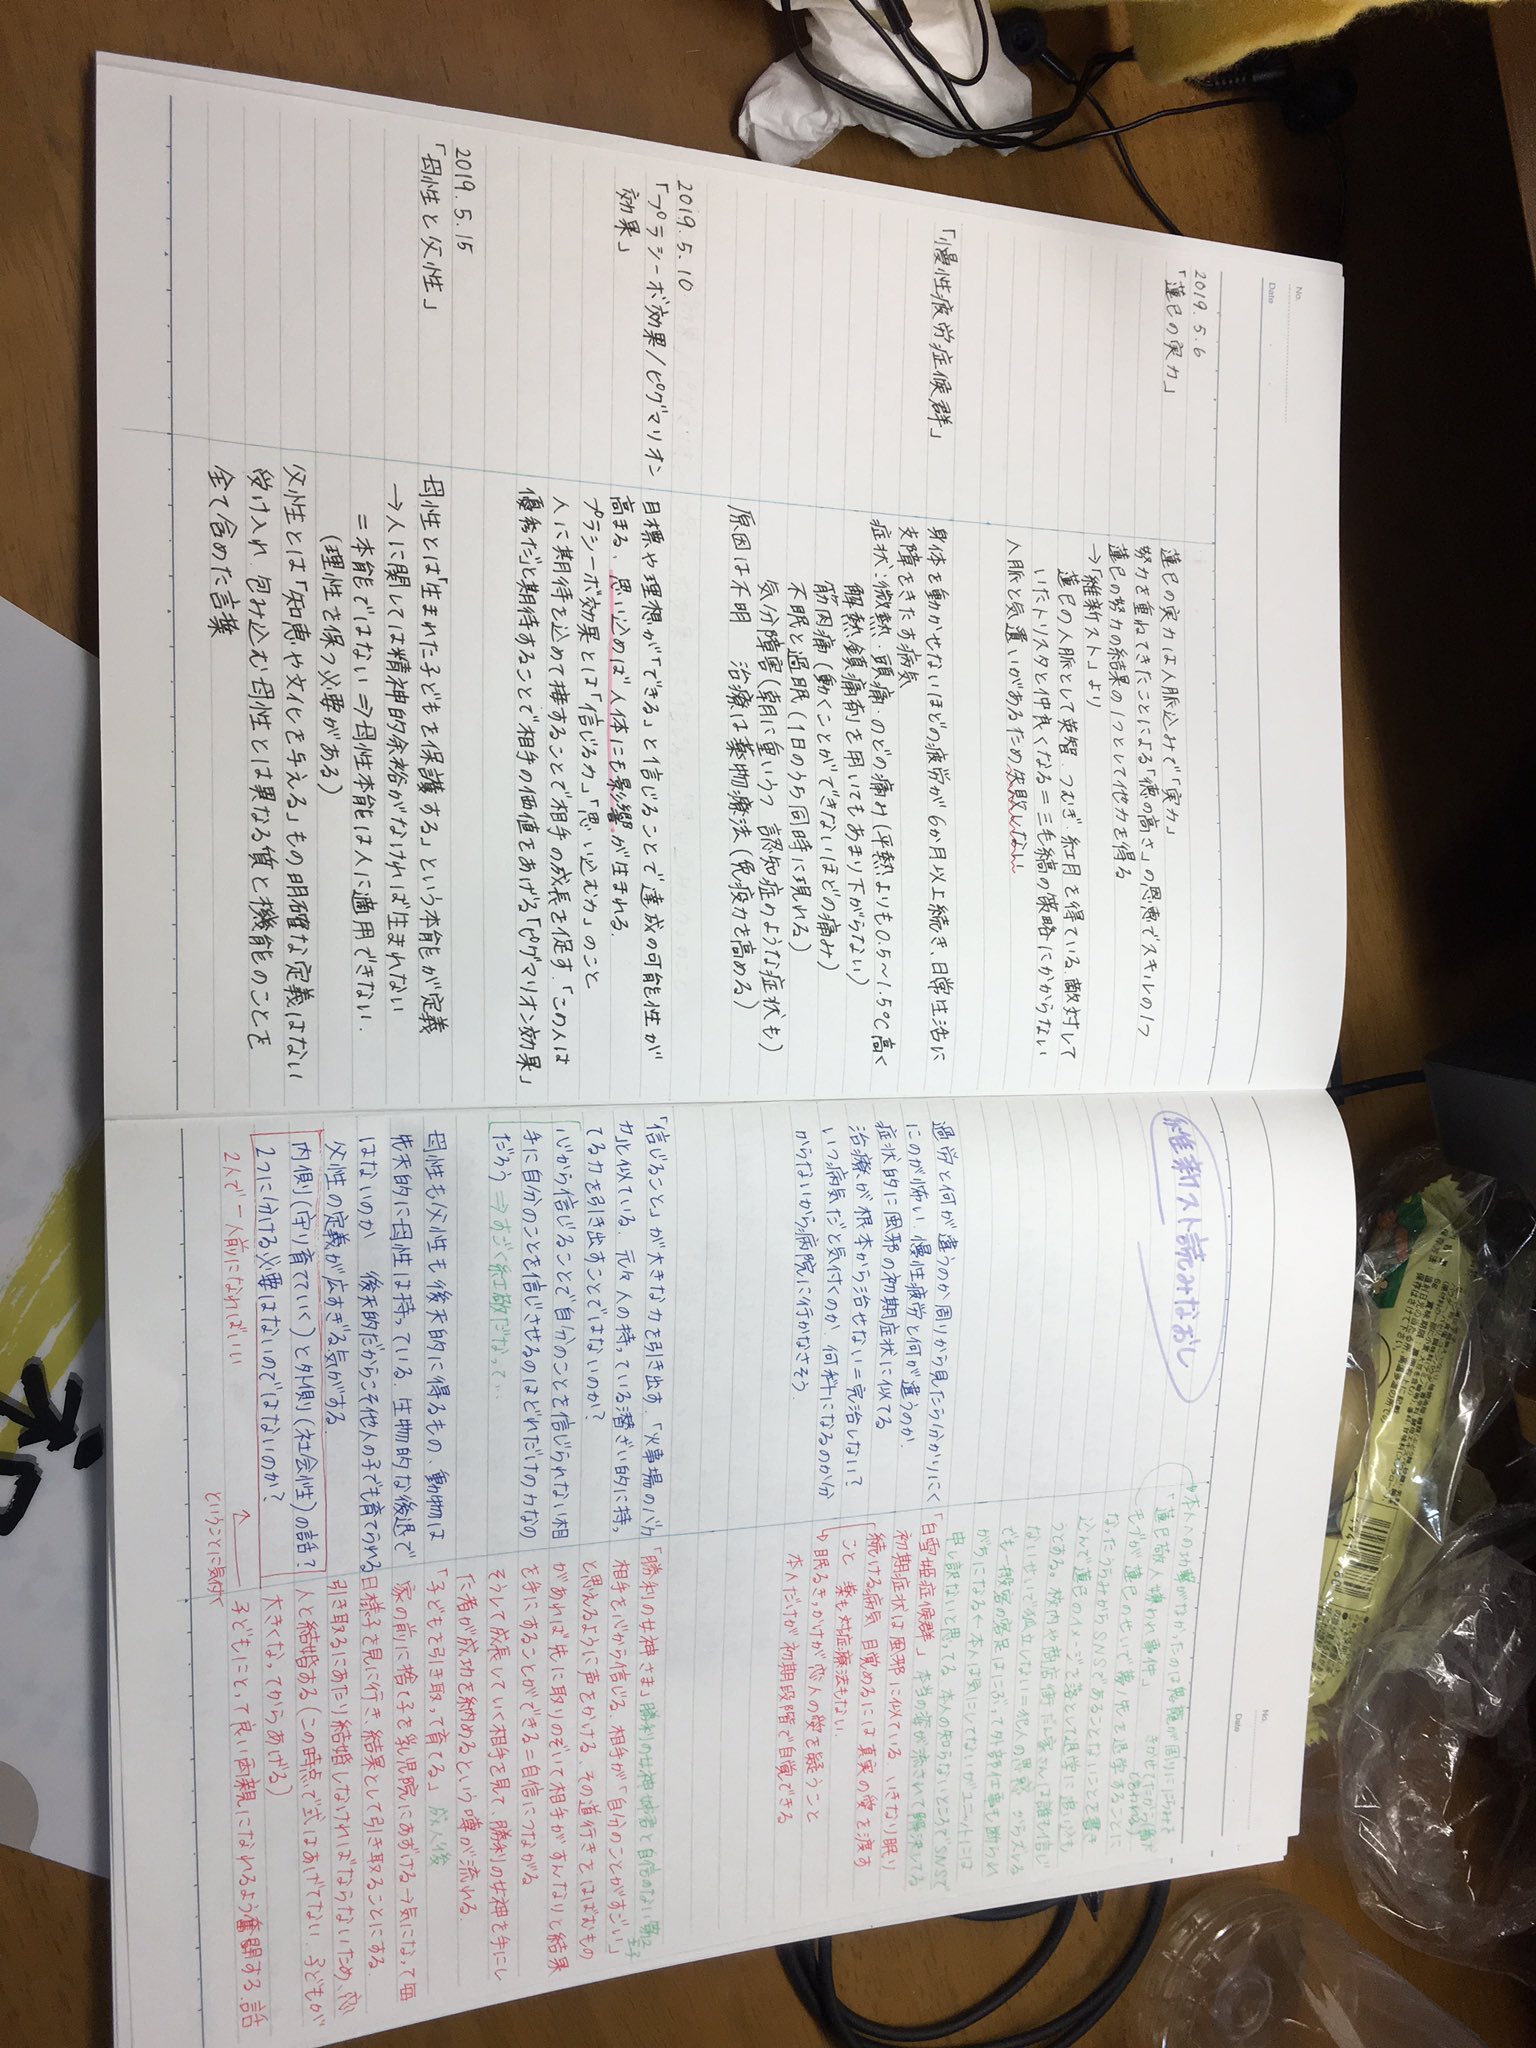 No.
Date
2019.5.6
「蓮巳の実力」
蓮巳の実力は人脈込みで「実力」
努力を重ねてきたことによる「徳の高さ」の恩恵でスキルの1つ
蓮巳の努力の結果の1つとして他力を得る
→「維新スト」より
蓮巳の人脈として英智、つむぎ、紅月を得ている、敵対して
いたトリスタと仲良くなる=三毛縞の策略にかからない
人脈と気遣いがあるため失敗しない
「慢性疲労症候群」
身体を動かせないほどの疲労が6か月以上続き、日常生活に
支障をきたす病気
症状:微熱、頭痛、のどの痛み(平熱よりも0.5~1.5℃高く
解熱鎮痛剤を用いてもあまり下がらない)
筋肉痛(動くことができないほどの痛み)
不眠と過眠(1日のうち同時に現れる)
気分障害(朝に重いうつ 認知症のような症状も)
原因は不明 治療は薬物療法(免疫力を高める)
2019.5.10
「プラシーボ効果/ピグマリオン
効果」
目標や理想が「できる」と信じることで達成の可能性が
高まる、思い込めば人体にも影響が生まれる.
プラシーボ効果とは「信じる力」「思い込む力」のこと
人に期待を込めて接することで相手の成長を促す.「この人は
優秀だ」と期待することで相手の価値をあげる「ピグマリオン効果」
2019.5.15
「母性と父性」
母性とは「生まれた子どもを保護する」という本能が定義
→人に関しては精神的余裕がなければ生まれない
=本能ではない⇒母性本能は人に適用できない.
(理性を保つ必要がある)
父性とは「知恵や文化を与える」もの明確な定義はない
受け入れ、包み込む母性とは異なる質と機能のことを
全て含めた言葉
No.
Date
維新スト読みなおし
過労と何が違うのか周りから見たら分かりにく
いのが怖い、慢性疲労と何が違うのか
症状的に風邪の初期症状に似てる
治療が根本から治せない=完治しない?
いつ病気だと気付くのか、何科になるのか分
からないから病院に行かなさそう.
「信じること」が大きな力を引き出す.「火事場のバカ
力」と似ている、元々人の持っている潜ざい的に持っ
てる力を引き出すことではないのか?
心から信じることで自分のことを信じられない相
手に自分のことを信じさせるのはどれだけの力なの
だろう⇒すごく紅敬だなって…
母性も父性も後天的に得るもの、動物は
先天的に母性は持っている.生物的な後退で
はないのか 後天的だからこそ他人の子でも育てられる
父性の定義が広すぎる気がする.
内側(守り育てていく)と外側(社会性)の話?
2つに分ける必要はないのではないのか?
2人で一人前になればいい
ということに気付く
「蓮巳敬人嫌われ事件」
なったうらみからSNSであることないことを書き
込んで蓮巳のイメージを落として退学に追い込も
うとする。校内や商店街だと家さんは誰も信じ
ないせいで孤立しない=犯人の思惑からズレる
でも一般客の客足はにぶって外部仕事も断られ
がちになる←本人は気にしてないがユニットには
申し訳ないと思ってる、本人の知らないところでSNSで
本当の姿が流されて解決してる
「白雪姫症候群」
初期症状は風邪に似ている、いきなり眠り
続ける病気 目覚めるには真実の愛を渡す
こと 薬も対症療法もない.
↳眠るきっかけが恋人の愛を疑うこと
本人だけが初期段階で自覚できる
「勝利の女神さま」勝利の女神
相手を心から信じる、相手が「自分のことがすごい」
と思えるように声をかける、その道行きをはばむもの
があれば先に取りのぞいて相手がすんなりと結果
を手にすることができる=自信につながる
そうして成長していく相手を見て、勝利の女神を手にし
た者が成功を納めるという噂が流れる.
「子どもを引き取って育てる」成人後
家の前に捨て子を乳児院にあずける→気になって毎
日様子を見に行き結果として引き取ることにする.
引き取るにあたり結婚しなければならないため、恋
人と結婚する(この時点で式はあげてない.子どもが
大きくなってからあげる)
子どもにとって良い両親になれるよう奮闘する話